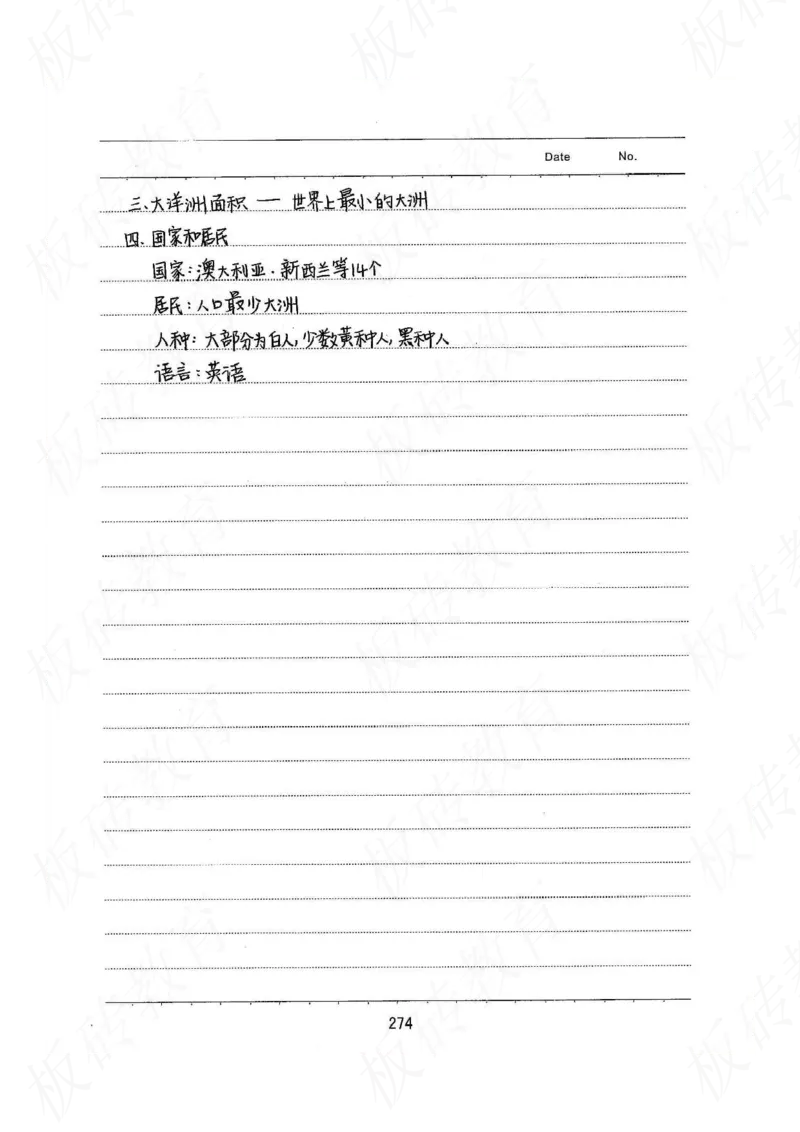 Date No.
三、大洋洲面积 — 世界上最小的大洲
四、国家和居民
国家：澳大利亚．新西兰等14个
居民：人口最少大洲
人种：大部分为白人，少数黄种人，黑种人
语言：英语
274
板砖教育